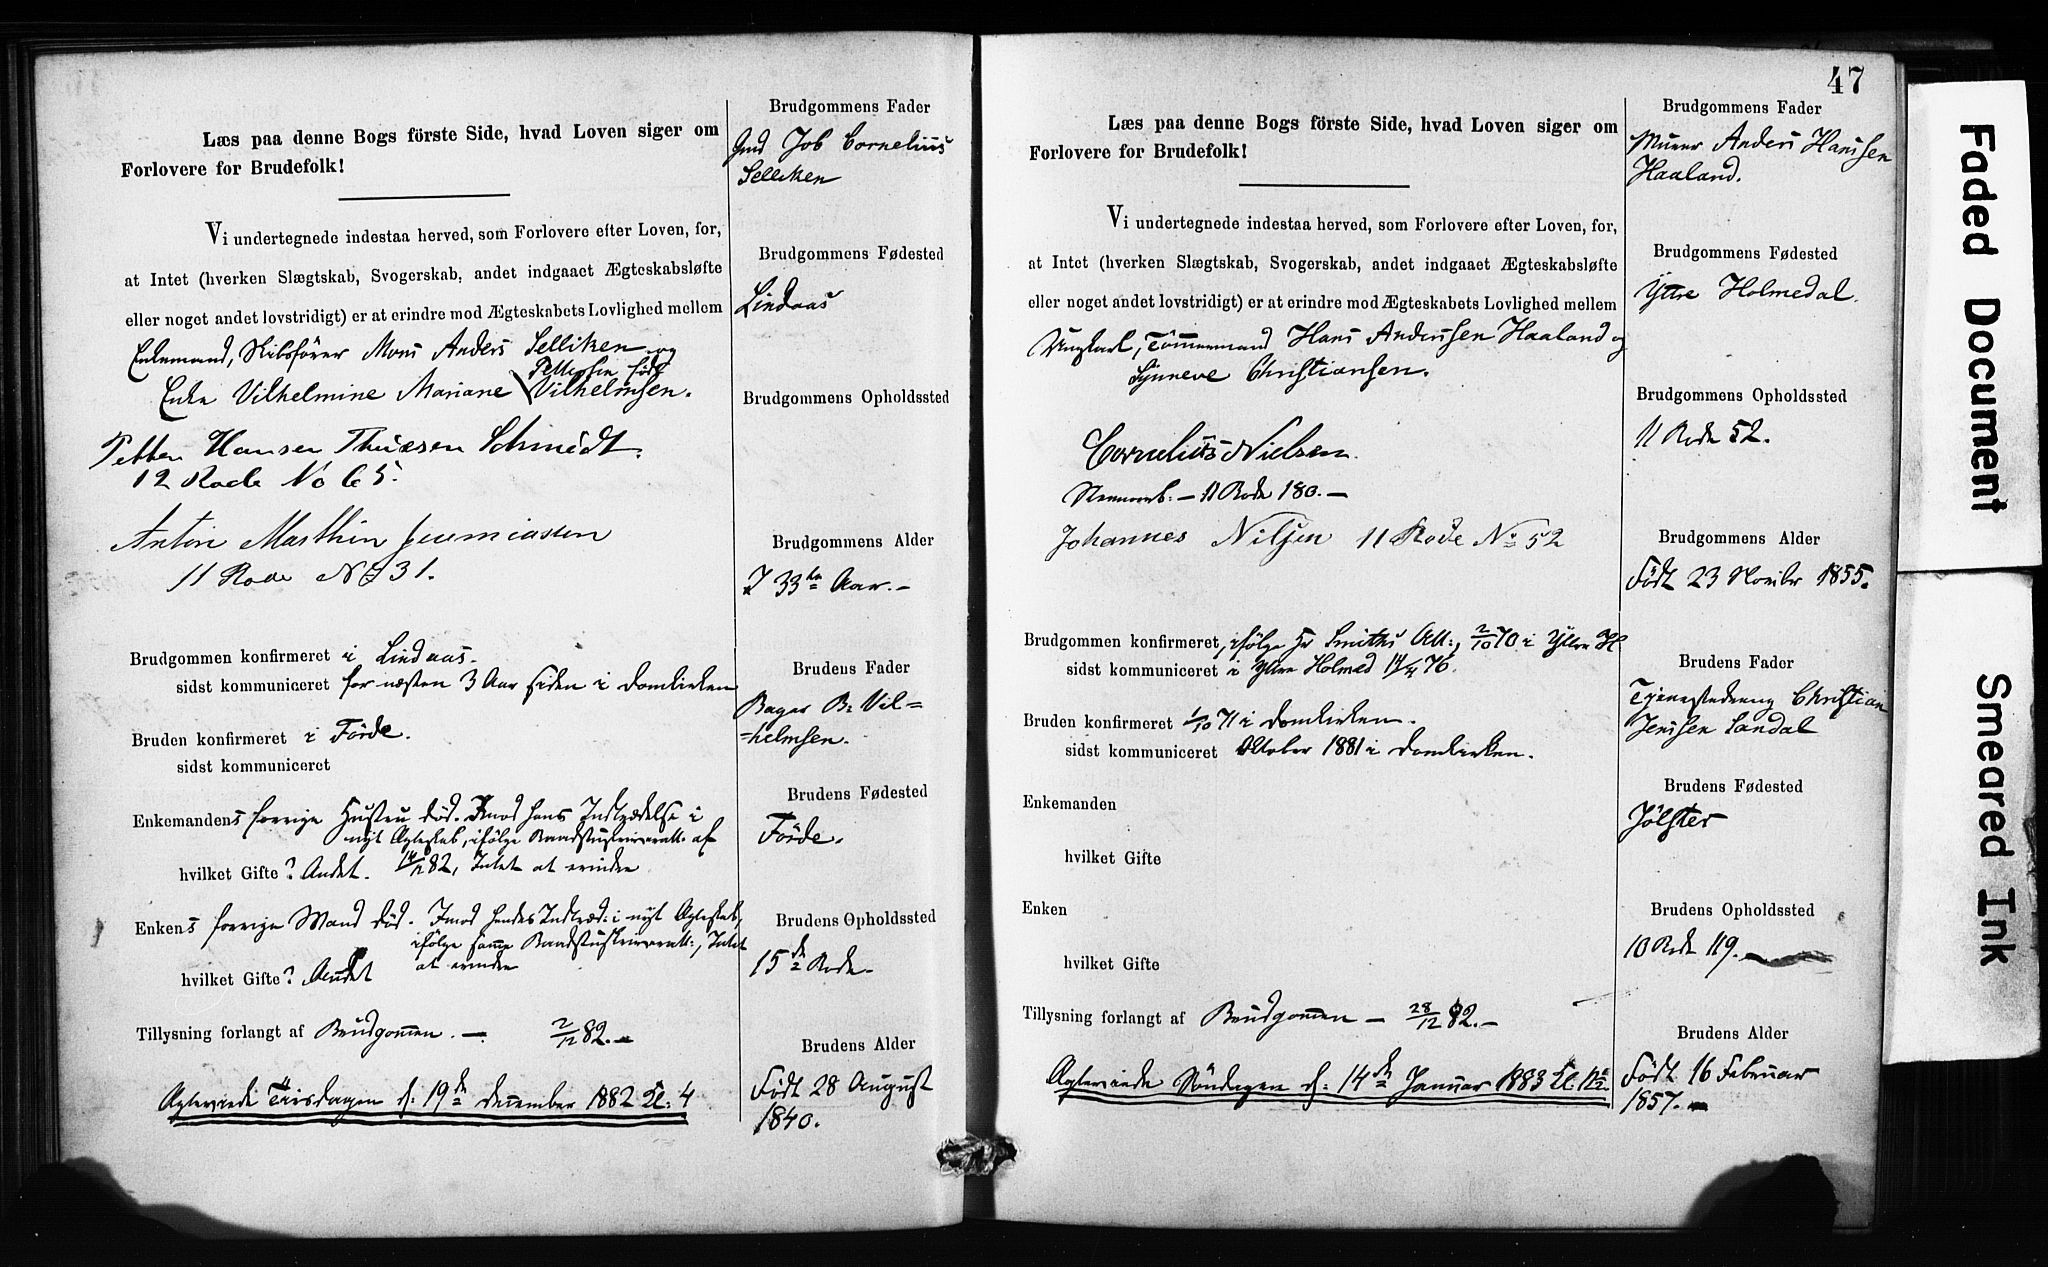 Læs paa denne Bogs förste Side, hvad Loven siger om
Forlovere for Brudefolk!
Vi undertegnede indestaa herved, som Forlovere efter Loven, for,
at Intet (hverken Slægtskab, Svogerskab, andet indgaaet Ægteskabsløfte
eller noget andet lovstridigt) er at erindre mod Ægteskabets Lovlighed mellem
Enkemand, Skibsfører Mons Anders Selliken og
Pettersen født
Enke Vilhelmine Mariane Vilhelmsen.
Petter Hansen Thuesen Schmidt.
12 Rode No 65.
Anton Marthin Jeremiassen
11 Rode No 31.
Brudgommen konfirmeret i Lindaas.
sidst kommuniceret for næsten 3 Aar siden i Domkirken
Bruden konfirmeret i Förde.
sidst kommuniceret
Enkemandens forrige Hustru død. Imod hans Indtrædelse i
nyt Ægteskab, ifølge Raadstuskriveratt. af
hvilket Gifte? Andet. 14/12 82, Intet at erindre
Enkens forrige Mand død. Imod hendes Indtræd: i nyt Ægteskab,
ifølge samme Raadstuskriveratt:, Intet
at erindre
hvilket Gifte? Andet
Tillysning forlangt af Brudgommen. — 2/12 82. —
Ægteviede Tirsdagen d. 19de December 1882 Kl. 4
Brudgommens Fader
Gmd Job Cornelius
Selliken
Brudgommens Fødested
Lindaas
Brudgommens Opholdssted
Brudgommens Alder
I 33te Aar. -
Brudens Fader
Bager B. Vil=
=helmsen.
Brudens Fødested
Förde.
Brudens Opholdssted
15de Rode.
Brudens Alder
Födt 28 August
1840.
47
Læs paa denne Bogs förste Side, hvad Loven siger om
Forlovere for Brudefolk!
Vi undertegnede indestaa herved, som Forlovere efter Loven, for,
at Intet (hverken Slægtskab, Svogerskab, andet indgaaet Ægteskabsløfte
eller noget andet lovstridigt) er at erindre mod Ægteskabets Lovlighed mellem
Ungkarl, Tömmermand Hans Anderssen Haaland og
Synneve Christiansen.
Cornelius Nielsen.
11 Rode 180. —
Johannes Nilsen 11 Rode No 52
Brudgommen konfirmeret, ifølge Hr Smiths Att:, 2/10 70 i Yttre H
sidst kommuniceret i Yttre Holmed 76.
Bruden konfirmeret 1/10 71 i Domkirken.
sidst kommuniceret Oktober 1881 i Domkirken.
Enkemanden
hvilket Gifte
Enken
hvilket Gifte
Tillysning forlangt af Brudgommen — 28/12 82. —
Ægteviede Söndagen d. 14de Januar 1883 Kl.
Brudgommens Fader
Murer Anders Hanssen
Haaland.
Brudgommens Fødested
Yttre Holmedal.
Brudgommens Opholdssted
11 Rode 52.
Brudgommens Alder
Födt 23 Novbr 1855.
Brudens Fader
Christian
Jenssen Sandal
Brudens Fødested
Jölster
Brudens Opholdssted
10 Rode 119.
Brudens Alder
Födt 16 Februar
1857. —
Faded Document
Smeared Ink